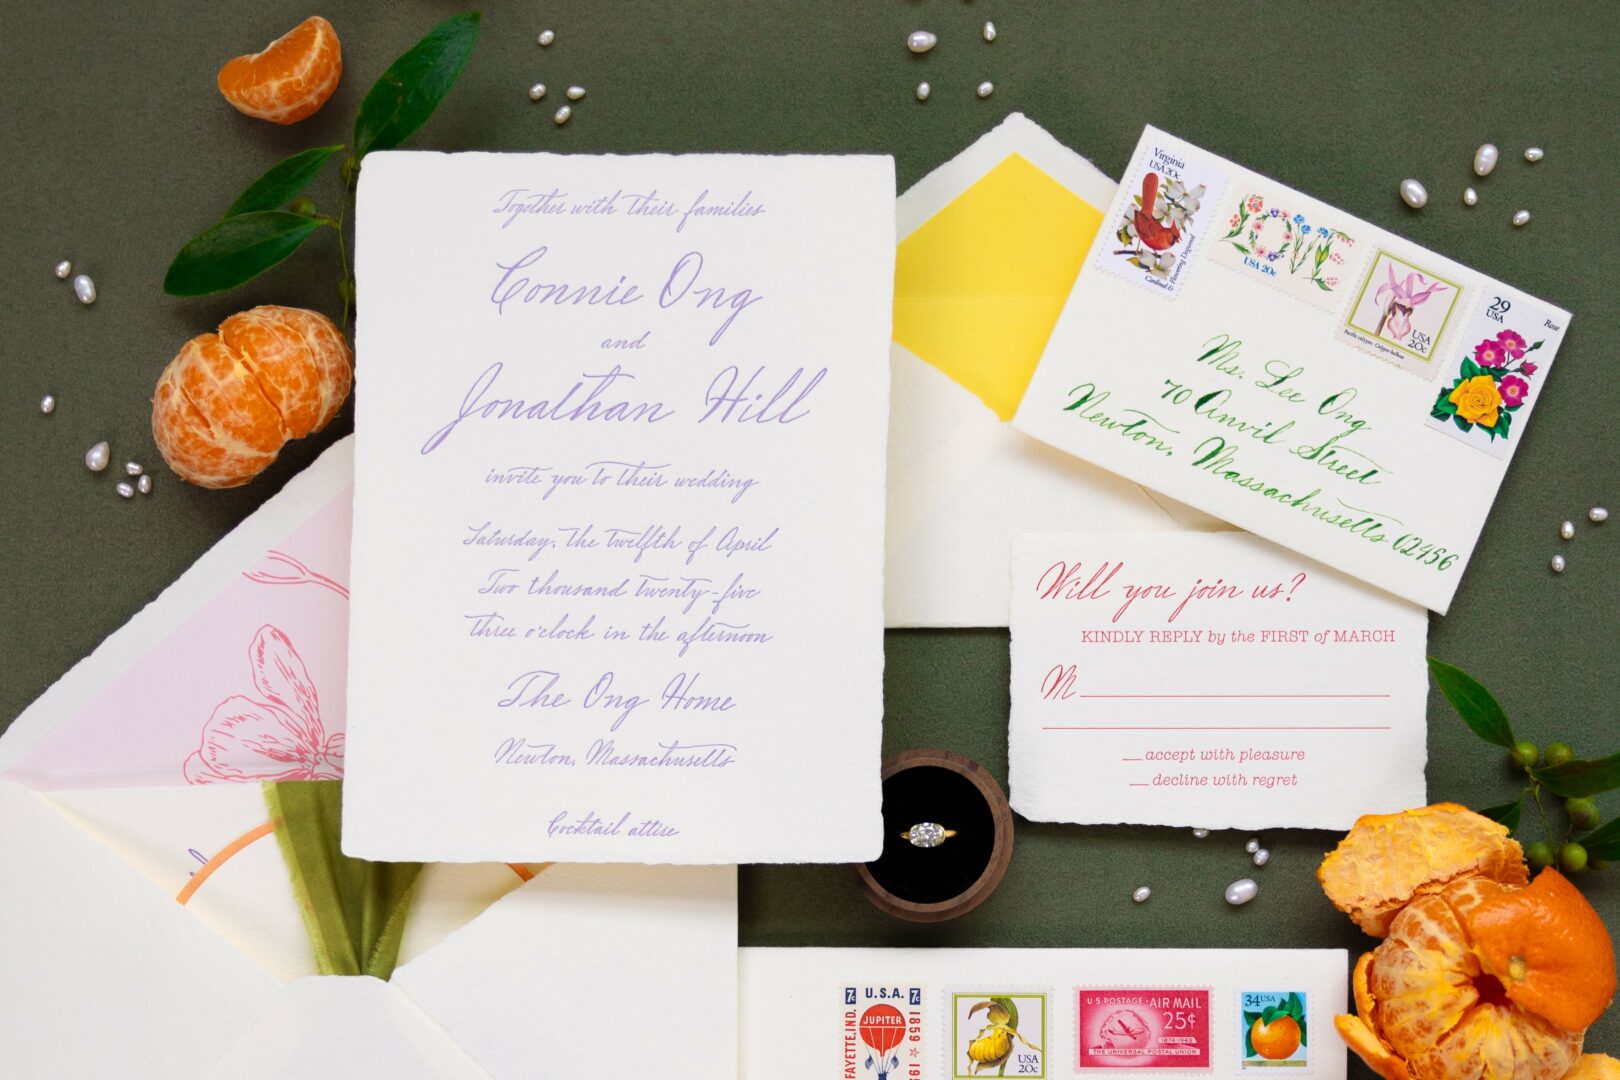 Together with their families
Connie Ong
and
Jonathan Hill
invite you to their wedding
Saturday, the twelfth of April
Two thousand twenty-five
three o'clock in the afternoon
The Ong Home
Newton, Massachusetts
Cocktail attire
Virginia
USA 20c
Cardinal &
Flowering Dogwood
LOVE
USA 20c
USA
20c
29
USA
Rose
Ms. Lee Ong
70 Anvil Street
Newton, Massachusetts 02456
Will you join us?
KINDLY REPLY by the FIRST of MARCH
M
accept with pleasure
decline with regret
7c U.S.A. 7c
JUPITER
FAYETTE, IND.
1859 ★
USA
20c
U.S. POSTAGE - AIR MAIL
25¢
1874-1949
THE UNIVERSAL POSTAL UNION
34 USA